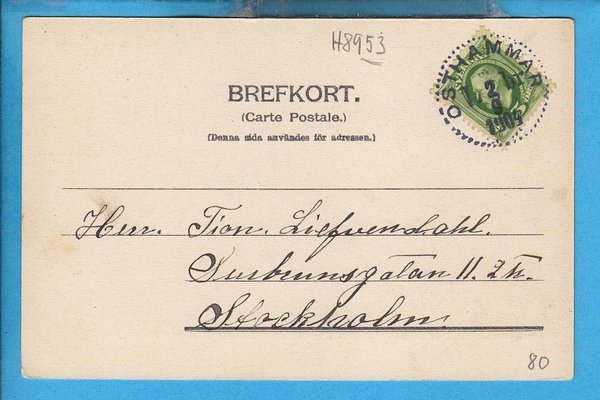 H8953
ÖSTHAMMAR
2
9
1905
BREFKORT.
(Carte Postale.)
(Denna sida användes för adressen.)
Herr. Tion. Liefvendahl.
Surbrunsgatan 11. 2 tr.
Stockholm.
80